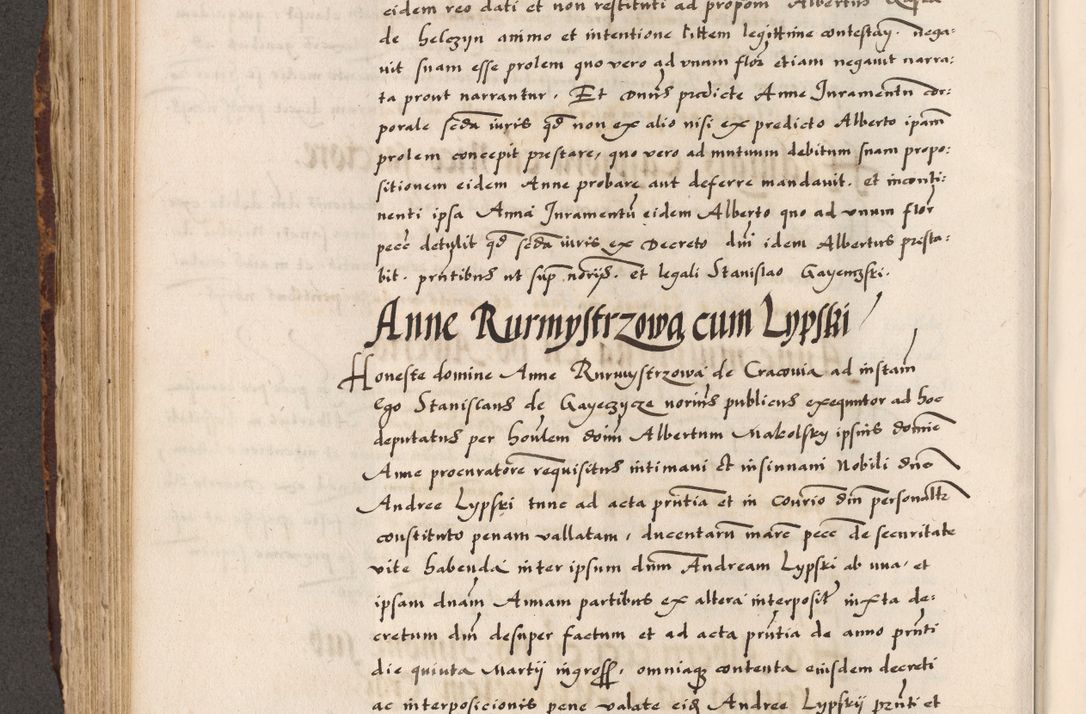 eidem reo dati et non restituti ad proposi Albertus
de helczyn animo et intentione littem legittime contestaŋ. nega:
uit suam esse prolem quo vero ad vnum flor etiam negauit narra:
ta prout narrantur. Et Dnus predicte Anne Juramentu cor:
porale scda iuris qd non ex alio nisi ex predicto Alberto ipam
prolem concepit prestare, quo vero ad mutuum debitum suam propo:
sitionem eidem Anne probare aut deferre mandauit. et inconti:
nenti ipsa Anna Juramentu eidem Alberto quo ad vnum flor
pecc detulit qd scda iuris ex Decreto dni idem Albertus presta:
bit. pntibus ut sup norijs. et legali Stanislao Gayenczski.
Anne Rurmystrzowa cum Lypski
Honeste domine Anne Rurmystrzowa de Cracouia ad instam
Ego Stanislaus de Gayeczycze norius publicus exequutor ad hoc
deputatus per houlem doim Albertum Makolsky ipsius domie
Anne procuratore requisitus intimaui et insinuaui Nobili dno
Andree Lypski tunc ad acta pntia et in Courio dni personaltr
constituto penam vallatam, ducentaru marc pecc de securitate
vite habenda inter ipsum dnm Andream Lypski ab vna, et
ipsam dnam Annam partibus ex altera interposit iuxta de:
cretum dni desuper factum et ad acta pntia de anno pnti
die quinta Martij ingross, omniaq contenta eiusdem decreti
ac interposicionis pene valate eid Andree Lypskij pnti et